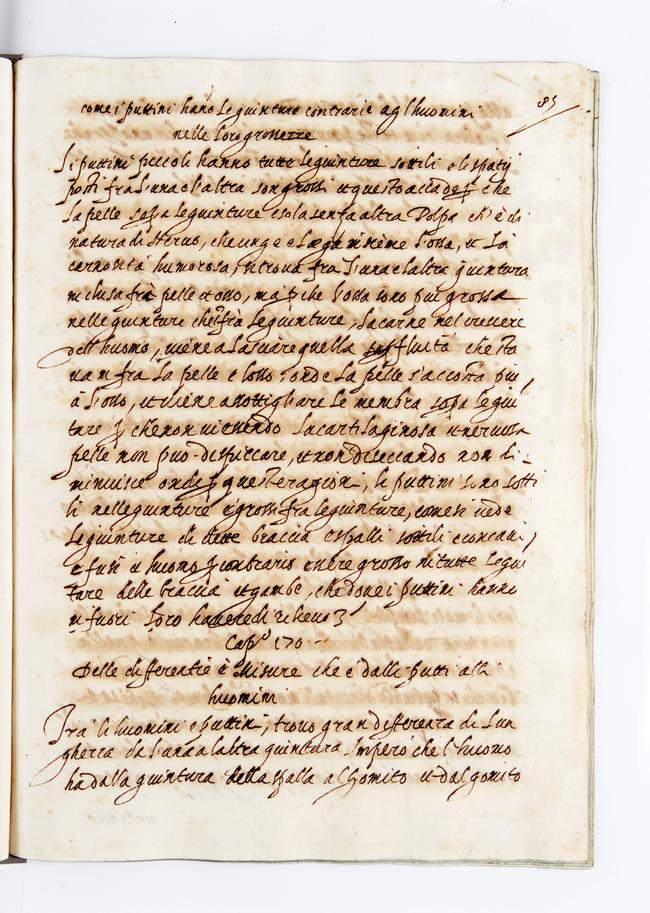 85
come i puttini hano le giunture contrarie agl'huomini
nelle loro grossezze
Li puttini piccoli hanno tutte le giunture sottili e li spatij
posti fra l'una e l'altra son grossi et questo accade p che
la pelle sopa le giunture e sola senza altra Polpa ch'è di
natura di Neruo, che unge e lega insieme l'ossa, et la
carnosità humorosa, si troua fra l'una e l'altra giuntura
inclusa frà pelle et osso, ma p che l'ossa sono piu grossa
nelle giunture che frà le giunture, la carne nel crescere
dell'huomo, uiene a lasciare quella suffluità che sta
ua in fra la pelle e l'osso, onde la pelle s'accosta piu
à l'osso, et uiene a sottigliare le membra sopa le giu
ture p che non ui essendo la cartilaginosa et neruosa
pelle non può diseccare, et non diseccando non di-
minuisce onde p queste ragion, li puttini sono sotti
li nelle giunture e grossi fra le giunture, come si uede
le giunture di dette braccia e spalli sottili e concaui,
e fusi et huomo p contrario essere grosso in tutte le giu
ture delle braccia et gambe, che doue i puttini hanno
in fuori loro hauere di rileuo
Cap.º 170
Delle differentie è misure che è dalli putti alli
huomini
Frà li huomini e puttini, trouo gran differenza di lun
ghezza da l'una a l'altra giuntura Imperò che l'huomo
ha dalla giuntura della spalla al Gomito et dal gomito